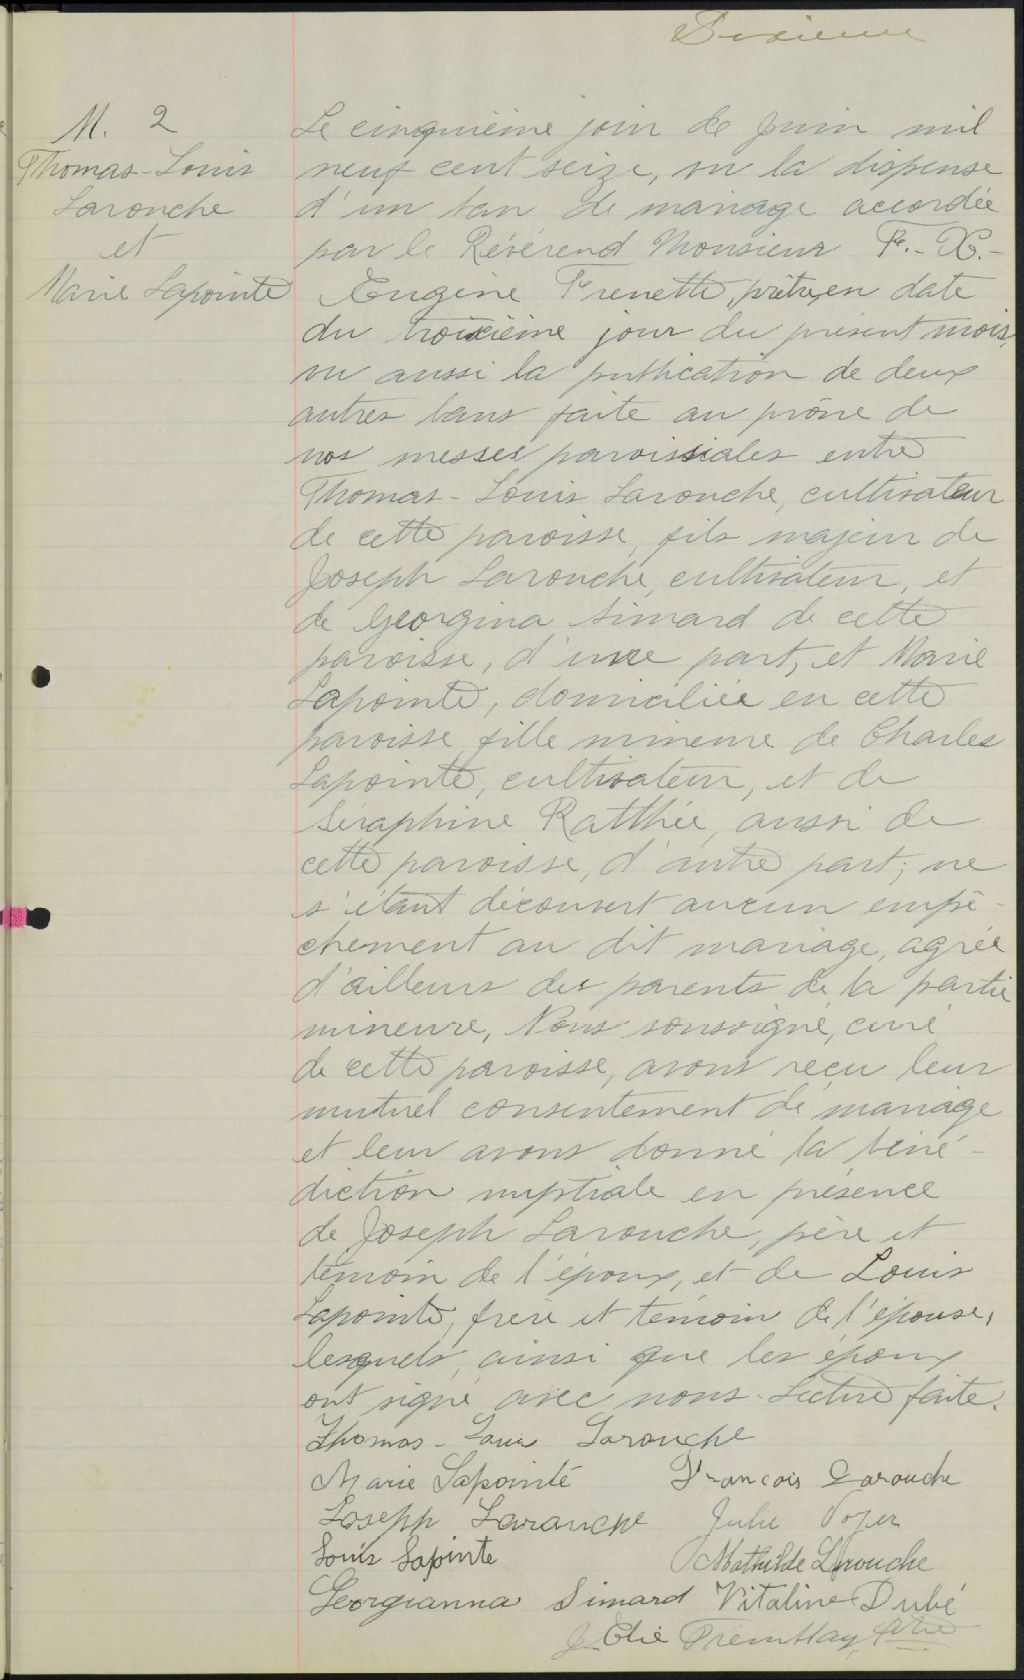 Sixieme
M. 2
Thomas-Louis
Larouche
et
Marie Lapointe
Le cinquième join de Juin mil
neuf cent seize, vu la dispense
d'un ban de mariage accordée
par le Révérend Monsieur F.-X.-
Eugène Frenette, prêtre, en date
du troisième jour du présent mois,
vu aussi la publication de deux
autres bans faite au prône de
nos messes paroissiales entre
Thomas-Louis Larouche, cultivateur
de cette paroisse, fils majeur de
Joseph Larouche, cultivateur, et
de Georgina Simard de cette
paroisse, d'une part, et Marie
Lapointe, domiciliée en cette
paroisse, fille mineure de Charles
Lapointe, cultivateur, et de
Séraphine Ratthée, aussi de
cette paroisse, d'autre part; ne
s'étant découvert aucun empê-
chement au dit mariage, agréé
d'ailleurs des parents de la partie
mineure, Nous soussigné, curé
de cette paroisse, avons reçu leur
mutuel consentement de mariage
et leur avons donné la béné-
diction nuptiale en présence
de Joseph Larouche, père et
témoin de l'époux, et de Louis
Lapointe, frère et témoin de l'épouse,
lesquels, ainsi que les époux
ont signé avec nous. Lecture faite.
Thomas-Louis Larouche
Marie Lapointe François Larouche
Joseph Larouche Julie
Louis Lapointe Mathilde Larouche
Georgianna Simard Vitaline Dubé
J. Elie Tremblay, Ptre